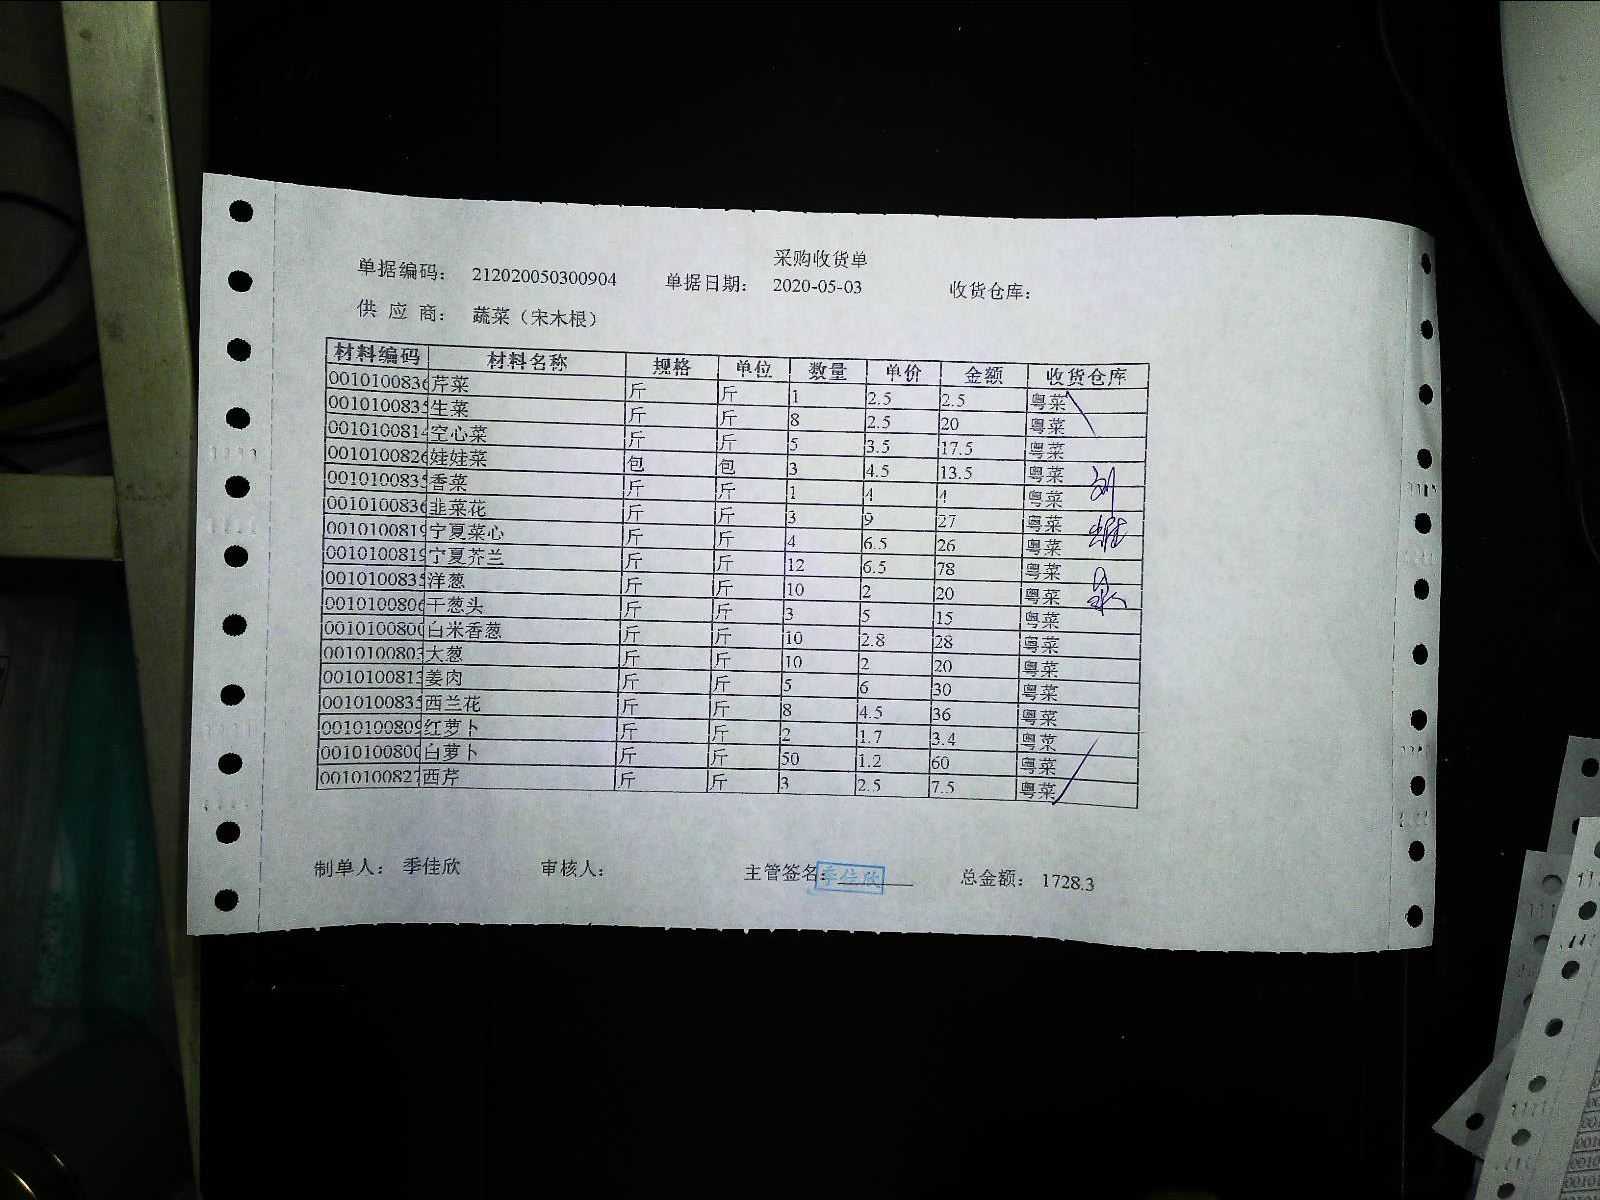 采购收货单
单据编码： 212020050300904 单据日期： 2020-05-03 收货仓库：
供 应 商： 蔬菜（宋木根）
材料编码 材料名称 规格 单位 数量 单价 金额 收货仓库
0010100836 芹菜 斤 斤 1 2.5 2.5 粤菜
0010100835 生菜 斤 斤 8 2.5 20 粤菜
0010100814 空心菜 斤 斤 5 3.5 17.5 粤菜
0010100826 娃娃菜 包 包 3 4.5 13.5 粤菜
0010100835 香菜 斤 斤 1 4 4 粤菜
0010100836 韭菜花 斤 斤 3 9 27 粤菜
0010100819 宁夏菜心 斤 斤 4 6.5 26 粤菜
0010100819 宁夏芥兰 斤 斤 12 6.5 78 粤菜
0010100835 洋葱 斤 斤 10 2 20 粤菜
0010100806 干葱头 斤 斤 3 5 15 粤菜
0010100800 白米香葱 斤 斤 10 2.8 28 粤菜
0010100803 大葱 斤 斤 10 2 20 粤菜
0010100813 姜肉 斤 斤 5 6 30 粤菜
0010100835 西兰花 斤 斤 8 4.5 36 粤菜
0010100809 红萝卜 斤 斤 2 1.7 3.4 粤菜
0010100800 白萝卜 斤 斤 50 1.2 60 粤菜
0010100827 西芹 斤 斤 3 2.5 7.5 粤菜
制单人： 季佳欣 审核人： 主管签名： 季佳欣 总金额： 1728.3